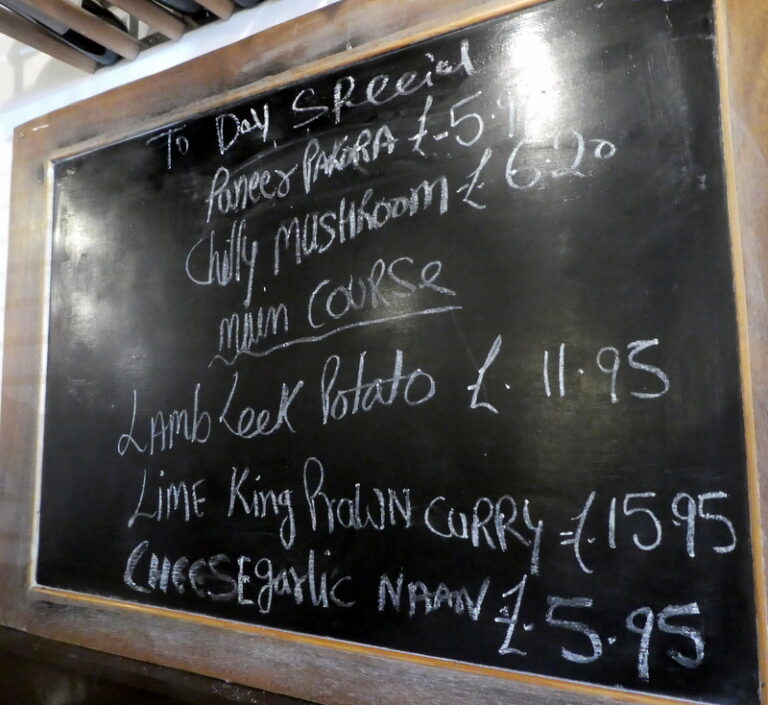 To Day Special
Paneer PAKORA £-5.
Chilly MUSHROOM £ 6.20
main COURSE
LAMB Leek Potato £. 11.95
LIME King PRAWN CURRY £.15.95
CHEESE garlic NAAN £.5.95